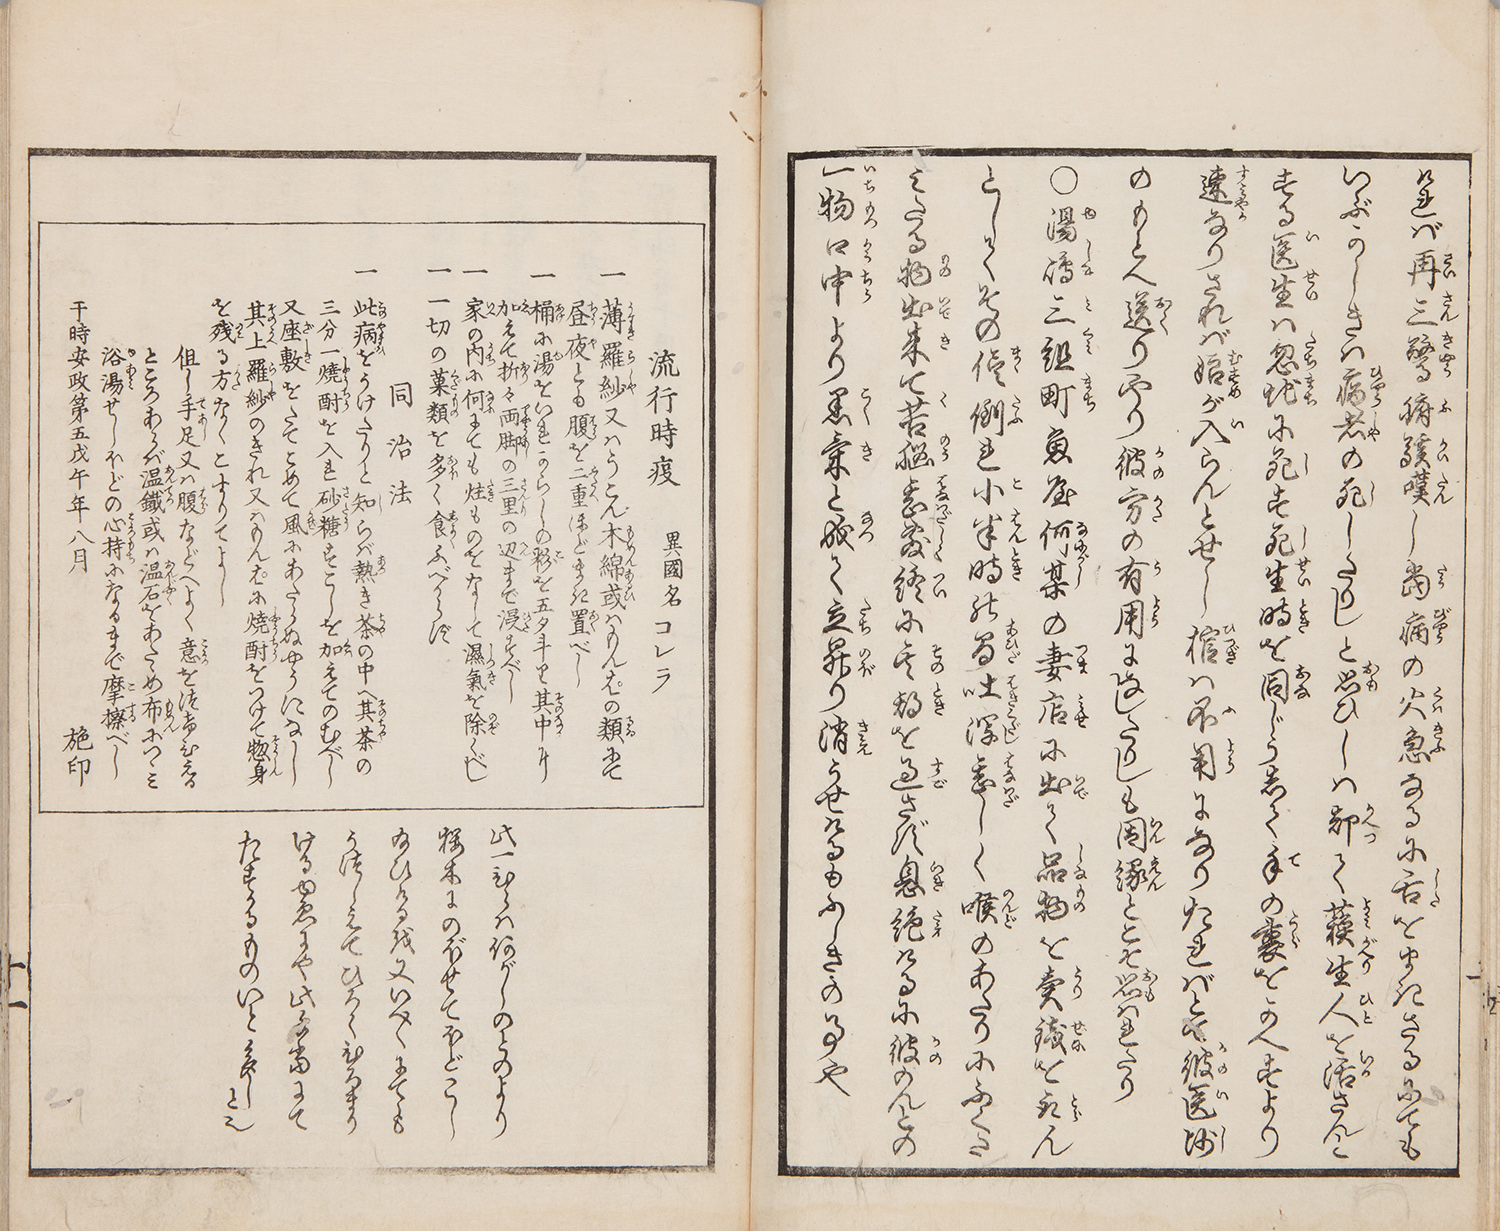 是バ再三驚き腑観嘆し歯痛の火急なるに舌をまきさるにても
いぶかしきハ病者の死したりしと思ひしハ却て蘓生人を活さんと
する医生ハ忽地に死す死生時を同じうして手の裏をかへすより
速なりされバ娼が入らんとせし棺ハ不用になりたれバとて彼医師
のもとへ送りやり彼方の有用になしたりしも因縁とこそ思はれたり
○湯嶋三組町魚屋何某の妻店に出て品物を売銭をとらん
としてその侭倒れ小半時ばかり吐瀉甚しく喉のあたりにふくた
みたる物出来て苦脳甚敷終に其時を過さず息絶けるに彼のんどの
一物口中より黒気と成て立昇り消うせけるもふしきの事や
流行時疫 異國名コレラ
一 薄羅紗又ハうこん木綿或ハもんぱの類にて
昼夜とも腹を二重ほどまき置べし
一 桶に湯をいれからしの粉を五夕斗り其中に
加えて折々両脚の三里の辺まで浸すべし
一 家の内に何にても炷ものをなして濕氣を除くべし
一 一切の菓類を多く食ふべからず
同治法
一 此病をうけたりと知らバ熱き茶の中へ其茶の
三分一焼酎を入れ砂糖をすこしを加えてのむべし
又座敷をたてこめて風にあたらぬやうになし
其上羅紗のきれ又ハもんぱに焼酎をつけて惣身
を残る方なくこすりてよし
但し手足又ハ腹などへよく意を注ひゆる
ところあらバ温鐵或ハ温石をあたゝめ布につゝミ
浴湯せしほどの心持になるまで摩擦べし
于時安政第五戊午年八月
施印
此一ひらハ何がしのとのより
桜木にのぼせてほどこし
給ひけるを又いへ〱にても
うつしゑてひろくひろまり
けるゆゑにや此病にて
たすかるものいと多しとみ